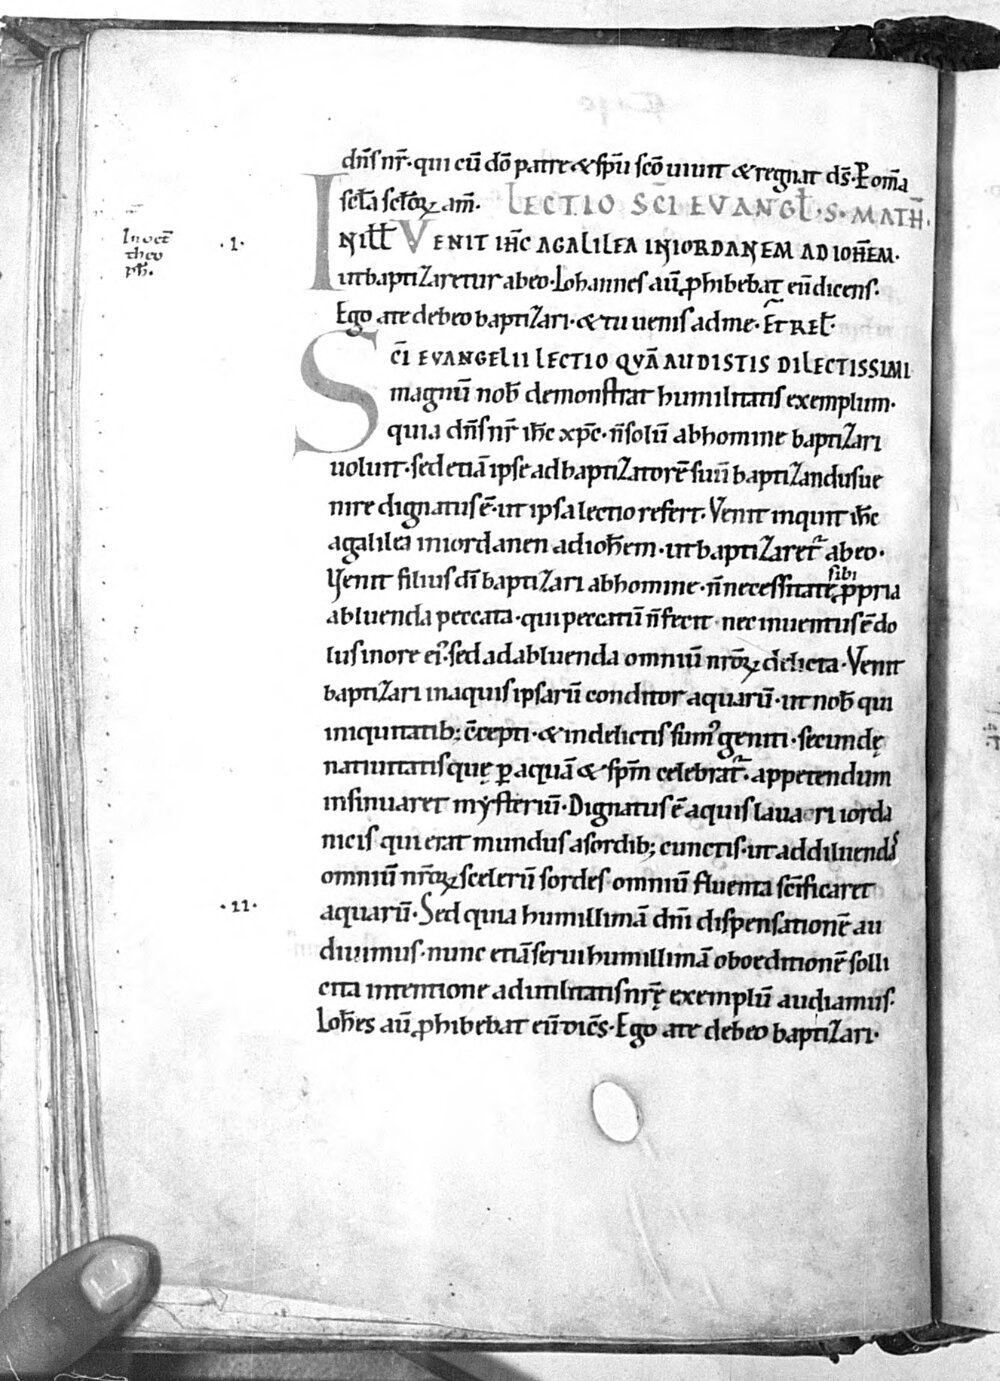 dn̄s nr̄· qui cū dō patre & sp̄u sc̄o uiuit & regnat ds̄· P om̄a
sc̄la sc̄loꝝ am̄· LECTIO SC̄I EVANGL̄·S·MATH̄·
In oct̄ ·I· INILL̄ VENIT IH̄C AGALILEA INIORDANEM AD IOH̄EM·
theo
ph̄·
utbaptizaretur abeo· Iohannes aū ꝓhibebat eūdicens·
Ego ate debeo baptizari· & tu uenis adme· ET REL̄·
SC̄I EVANGELII LECTIO QUĀ AUDISTIS DILECTISSIMI
magnū nob̄ demonstrat humilitatis exemplum·
quia dn̄s nr̄ ih̄c xp̄c· n̄solū abhomine baptizari
uoluit· sed etiā ipse adbaptizatorē suū baptizandus ue
nire dignatus ē· ut ipsa lectio refert· Venit inquit ih̄c
agalilea iniordanen adioh̄em· ut baptizaret̄ abeo·
Venit filius dī baptizari abhomine· n̄necessitate sibi ꝓpria
abluenda peccata· qui peccatū n̄fecit· nec inuentus ē do
lus inore ei᾽· sed adabluenda omniū nr̄oꝝ delicta· Venit
baptizari inaquis ipsarū conditor aquarū· ut nob̄ qui
iniquitatib; c̄cepti· & indelictis sum᾽ geniti· secundę
natiuitatis quę ꝑ aquā & sp̄m celebrat̄· appetendum
insinuaret mysteriū· Dignatus ē aquis lauari iorda
nicis qui erat mundus asordib; cunctis· ut addiluendas
omniū nr̄oꝝ scelerū sordes omniū fluenta sc̄ificaret
·II· aquarū· Sed quia humillimā dn̄i dispensationē au
diuimus· nunc etiā serui humillimā oboeditionē solli
cita intentione adutilitatis nr̄ę exemplū audiamus·
Ioh̄es aū ꝓhibebat eū dic̄s· Ego ate debeo baptizari·